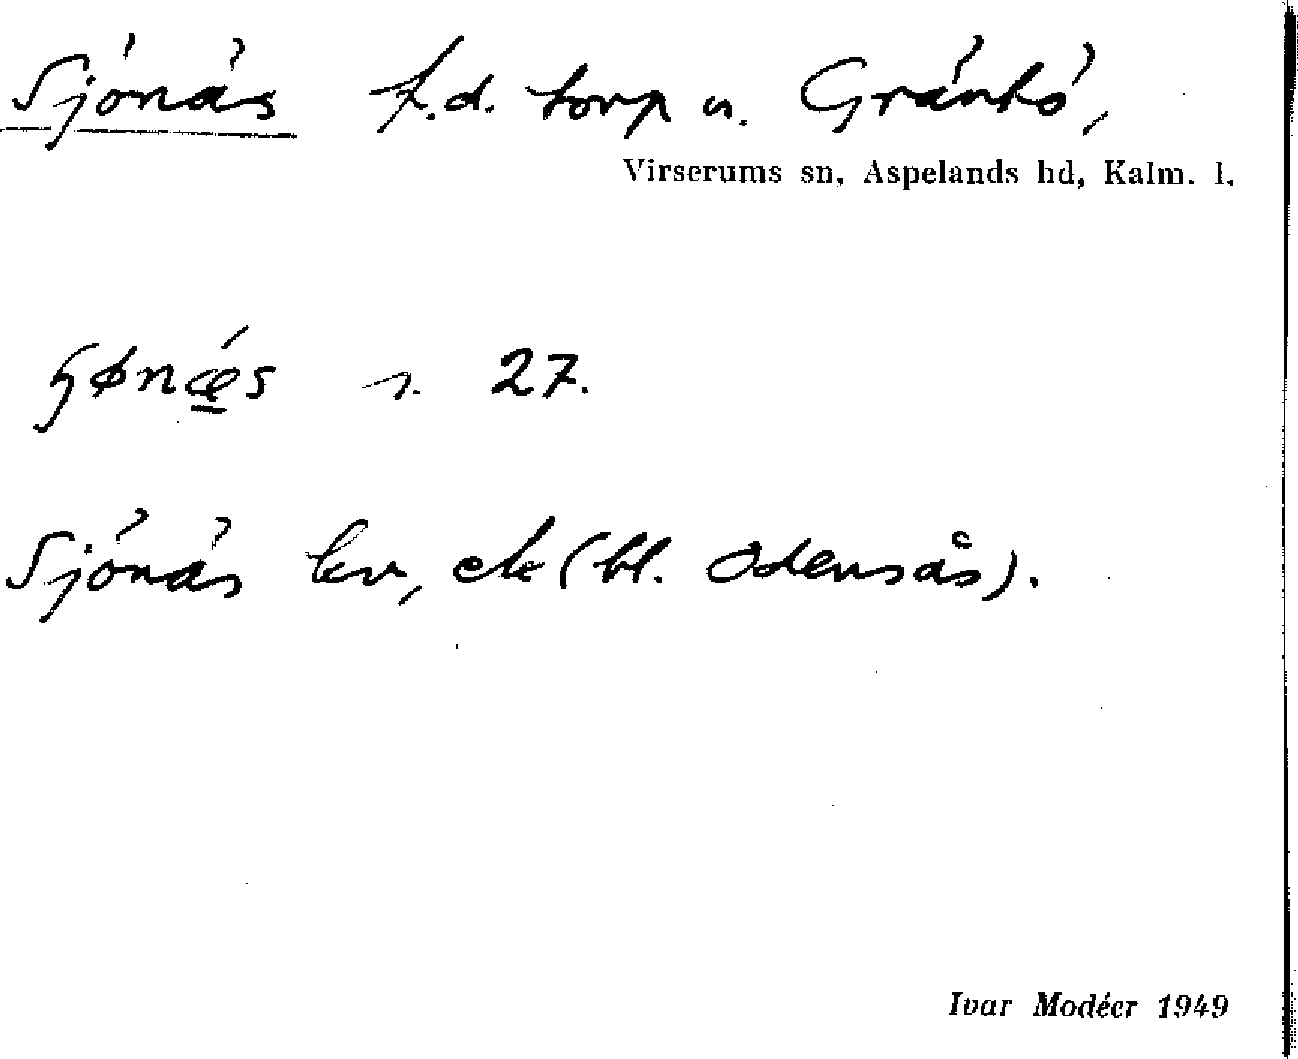 Sjönäs f.d. torp u. Gränhö,
Virserums sn, Aspelands hd, Kalm. l.
ɧønǽs 27.
Sjönäs kv, ek (bl. Odensås).
Ivar Modéer 1949